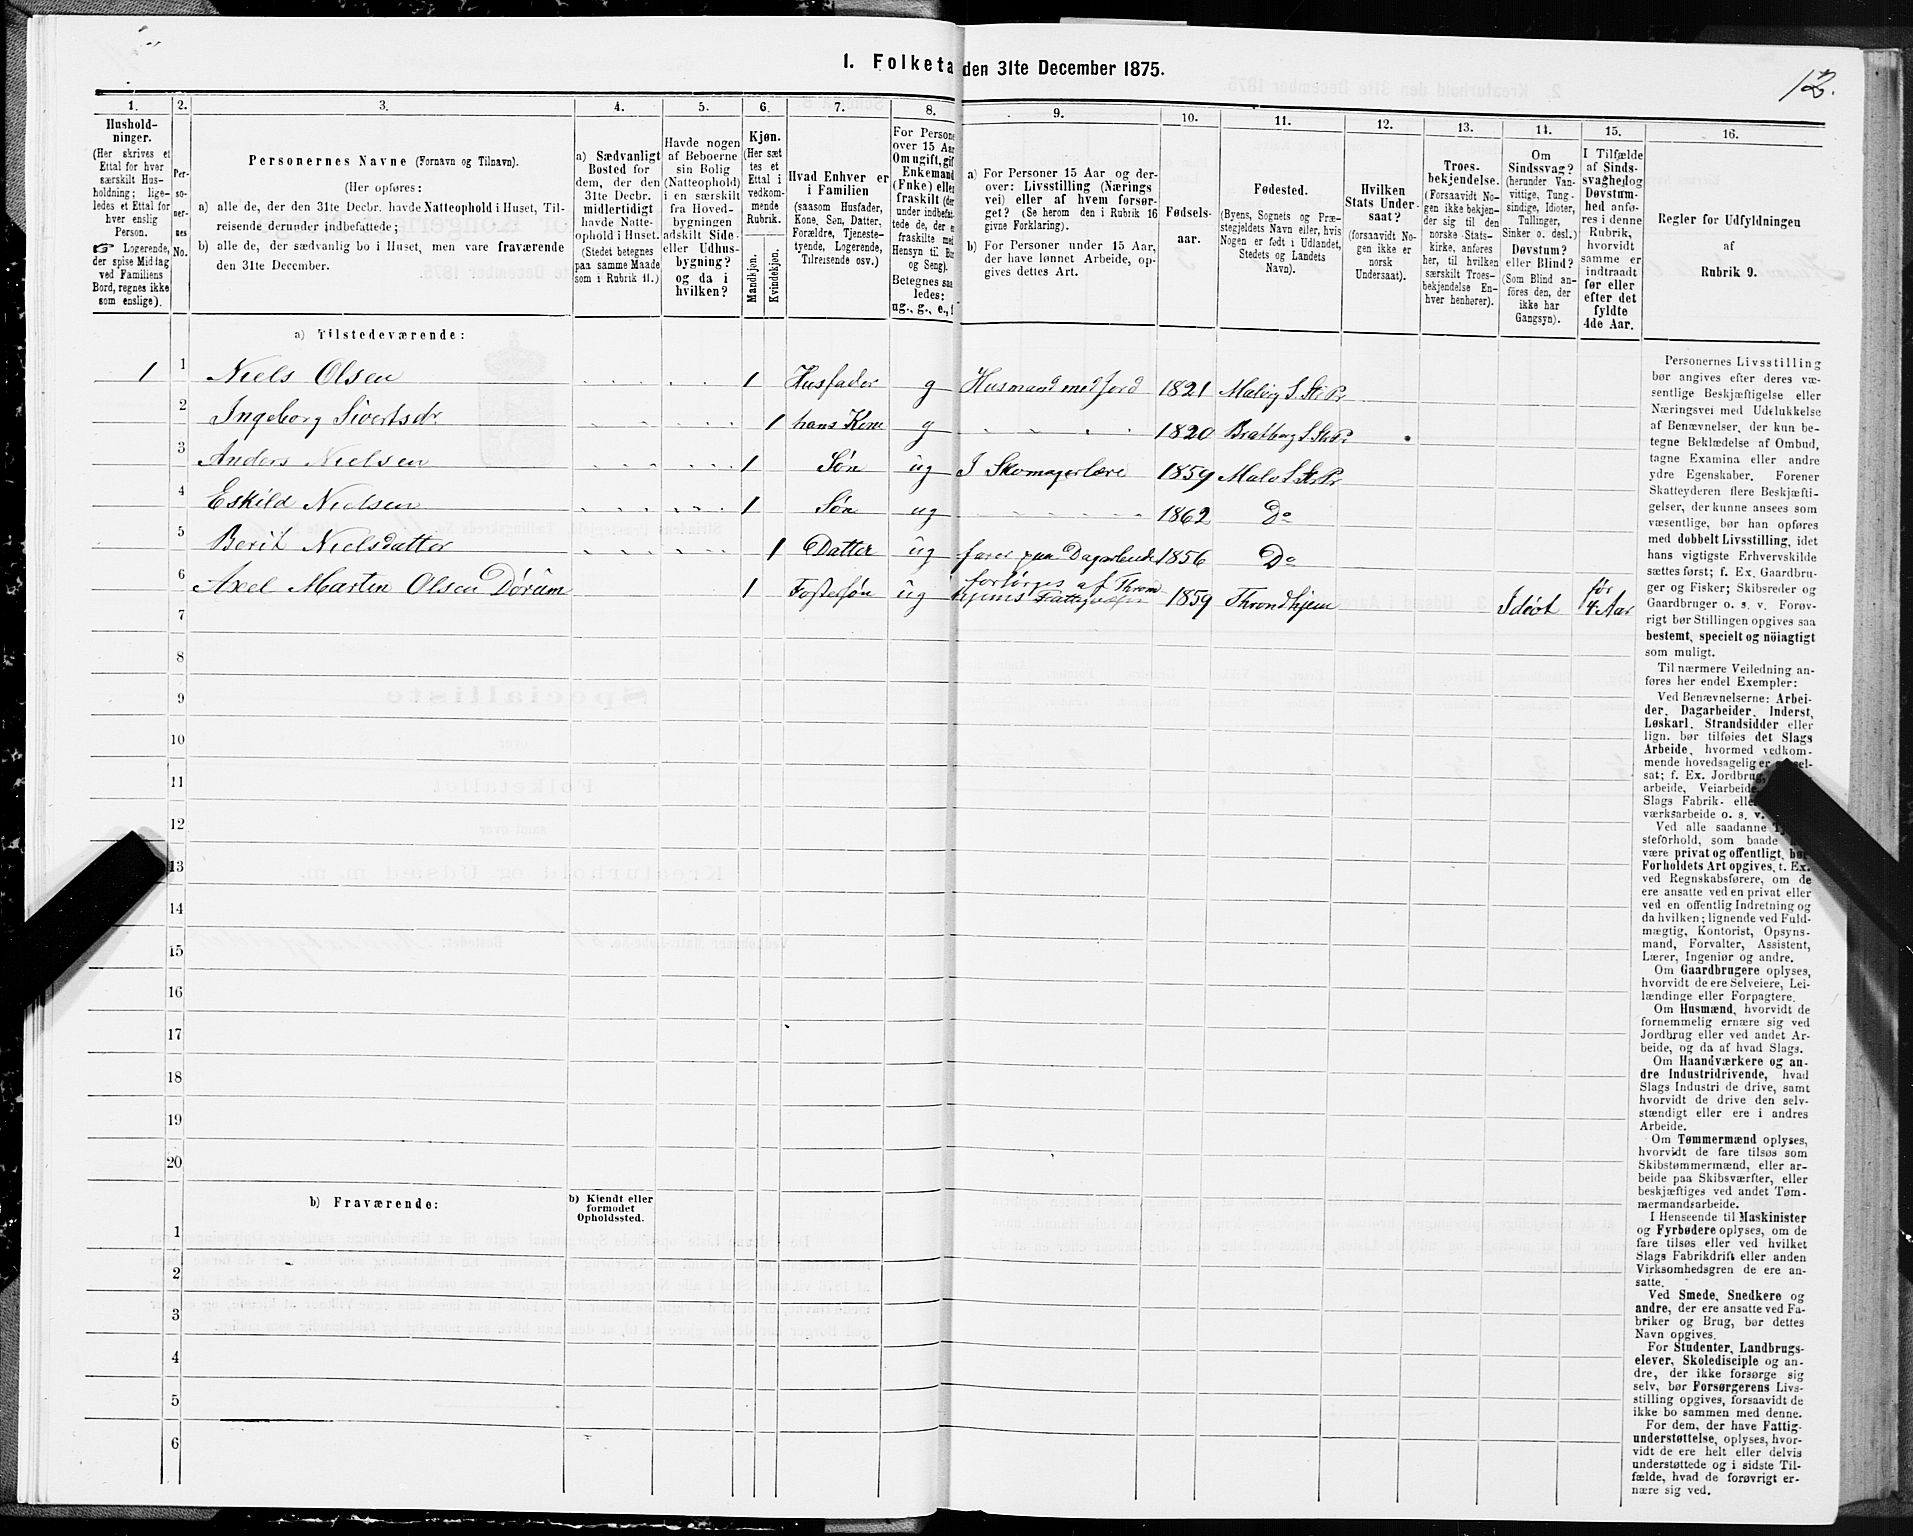 1. Folketa den 31te December 1875.
12.
1.
2.
3.
4.
5.
6.
7.
8.
9.
10.
11.
12.
13.
14.
15.
16.
Hushold-
ninger.
(Her skrives et
Ettal for hver
særskilt Hus-
holdning; lige-
ledes et Ettal for
hver enslig
Person.
☞ Logerende,
der spise Middag
ved Familiens
Bord, regnes ikke
som enslige).
Per-
so-
ner-
nes
No.
Personernes Navne (Fornavn og Tilnavn).
(Her opføres:
a) alle de, der den 31te Decbr. havde Natteophold i Huset, Til-
reisende derunder indbefattede;
b) alle de, der sædvanlig bo i Huset, men vare fraværende
den 31te December.
a) Sædvanligt
Bosted for
dem, der den
31te Decbr.
midlertidigt
havde Natte-
ophold i Huset.
(Stedet betegnes
paa samme Maade
som i Rubrik 11.)
Havde nogen
af Beboerne
sin Bolig
(Natteophold)
i en særskilt
fra Hoved-
bygningen
adskilt Side-
eller Udhus-
bygning?
og da i
hvilken?
Kjøn.
(Her sæt
tes et
Ettal i
vedkom-
mende
Rubrik.
Mandkjøn.
Kvindekjøn.
Hvad Enhver er
i Familien
(saasom Husfader,
Kone, Søn, Datter,
Forældre, Tjeneste-
tyende, Logerende,
Tilreisende osv.)
For Persone
over 15 Aar
Om ugift, gif
Enkemand
(Fnke) elle
fraskilt (der
under indbefat
tede de, der e
fraskilte med
Hensyn til Bo
og Seng).
Betegnes saa
ledes:
ug., g., e., f
a) For Personer 15 Aar og der-
over: Livsstilling (Nærings
vei) eller af hvem forsør-
get? (Se herom den i Rubrik 16
givne Forklaring).
b) For Personer under 15 Aar,
der have lønnet Arbeide, op-
gives dettes Art.
Fødsels-
aar.
Fødested.
(Byens, Sognets og Præ-
stegjeldets Navn eller, hvis
Nogen er født i Udlandet,
Stedets og Landets
Navn).
Hvilken
Stats Under-
saat?
(forsaavidt No-
gen ikke er
norsk
Undersaat).
Troes-
bekjendelse.
(Forsaavidt No-
gen ikke bekjen-
der sig til den
norske Stats-
kirke, anføres
her, til hvilken
særskilt Troes-
bekjendelse En-
hver henhører).
Om
Sindssvag?
(herunder Van-
vittige, Tung-
sindige, Idioter,
Tullinger,
Sinker o. desl.)
Døvstum?
eller Blind?
(Som Blind an-
føres den, der
ikke har
Gangsyn).
I Tilfælde
af Sinds-
svaghed og
Døvstum-
hed anfø-
res i denne
Rubrik,
hvorvidt
samme er
indtraadt
før eller
efter det
fyldte
4de Aar.
Regler for Udfyldningen
af
Rubrik 9.
a) Tilstedeværende:
1 1 Niels Olsen 1 Husfader g Husmand med Jord 1821 Malvig S. Str Pr
2 Ingeborg Sivertsdr. 1 hans Kone g 1820 Bratberg S. Str Pr.
3 Anders Nielsen 1 Søn ug I Skomagerlære 1859 Malv S. Str Pr
4 Eskild Nielsen 1 Søn ug 1862 Do
5 Berit Nielsdatter 1 Datter ug farer paa Dagarbeide 1856 Do
6 Axel Martin Olsen Dørum 1 Fostersøn ug forsørges af Thrond
hjems Fattigvæsen 1859 Throndhjem Idiot før
4 Aar
7
8
9
10
11
12
13
14
15
16
17
18
19
20
b) Fraværende:
b) Kjendt eller
formodet
Opholdssted.
1
2
3
4
5
6
Personernes Livsstilling
bør angives efter deres væ-
sentlige Beskjæftigelse eller
Næringsvei med Udelukkelse
af Benævnelser, der kun be-
tegne Beklædelse af Ombud,
tagne Examina eller andre
ydre Egenskaber. Forener
Skatteyderen flere Beskjæfti-
gelser, der kunne ansees som
væsentlige, bør han opføres
med dobbelt Livsstilling, idet
hans vigtigste Erhvervskilde
sættes først; f. Ex. Gaardbru-
ger og Fisker; Skibsreder og
Gaardbruger o. s. v. Forøv-
rigt bør Stillingen opgives saa
bestemt, specielt og nöiagtigt
som muligt.
Til nærmere Veiledning an-
føres her endel Exempler:
Ved Benævnelserne: Arbei-
der, Dagarbeider, Inderst,
Løskarl, Strandsidder eller
lign. bør tilføies det Slags
Arbeide, hvormed vedkom-
mende hovedsagelig er sel-
sat; f. Ex. Jordbrug,
arbeide, Veiarbeide
Slags Fabrik- elle
værksarbeide o. s. v.
Ved alle saadanne
steforhold, som baade
være privat og offentligt, bør
Forholdets Art opgives, t. Ex.
ved Regnskabsførere, om de
ere ansatte ved en privat eller
ved en offentlig Indretning og
da hvilken; lignende ved Fuld-
mægtig, Kontorist, Opsyns-
mand, Forvalter, Assistent,
Lærer, Ingeniør og andre.
Om Gaardbrugere oplyses,
hvorvidt de ere Selveiere, Lei-
lændinge eller Forpagtere.
Om Husmænd, hvorvidt de
fornemmelig ernære sig ved
Jordbrug eller ved andet Ar-
beide, og da af hvad Slags.
Om Haandværkere og an-
dre Industridrivende, hvad
Slags Industri de drive, samt
hvorvidt de drive den selv-
stændigt eller ere i andres
Arbeide.
Om Tømmermænd oplyses,
hvorvidt de fare tilsøs som
Skibstømmermænd, eller ar-
beide paa Skibsværfter, eller
beskjæftiges ved andet Tøm-
mermandsarbeide.
I Henseende til Maskinister
og Fyrbødere oplyses, om de
fare tilsøs eller ved hvilket
Slags Fabrikdrift eller anden
Virksomhedsgren de ere an-
satte.
Ved Smede, Snedkere og
andre, der ere ansatte ved Fa-
briker og Brug, bør dettes
Navn opgives.
For Studenter, Landbrugs-
elever, Skoledisciple og an-
dre, der ikke forsørge sig
selv, bør Forsørgerens Livs-
stilling opgives, forsaavidt de
ikke bo sammen med denne.
For dem, der have Fattig-
understøttelse, oplyses, hvor-
vidt de ere helt eller delvis
understøttede og i sidste Til-
fælde, hvad de forøvrigt er-
nære sig ved.